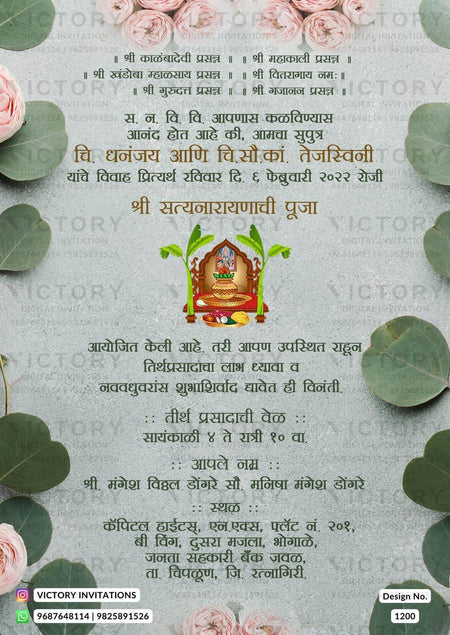 ॥ श्री काळंबादेवी प्रसन्न ॥ ॥ श्री महाकाली प्रसन्न ॥
॥ श्री खंडोबा म्हाळसाय प्रसन्न ॥ ॥ श्री चितरागाय नमः॥
॥ श्री गुरुदत्त प्रसन्न ॥ ॥ श्री गजानन प्रसन्न ॥
स. न. वि. वि. आपणास कळविण्यास
आनंद होत आहे की, आमचा सुपुत्र
चि. धनंजय आणि चि.सौ.कां. तेजस्विनी
यांचे विवाह प्रित्यर्थ रविवार दि. ६ फेब्रुवारी २०२२ रोजी
श्री सत्यनारायणाची पूजा
आयोजित केली आहे. तरी आपण उपस्थित राहून
तिर्थप्रसादाचा लाभ घ्यावा व
नववधुवरांस शुभाशिर्वाद द्यावेत ही विनंती.
:: तीर्थ प्रसादाची वेळ ::
सायंकाळी ४ ते रात्री १० वा.
:: आपले नम्र ::
श्री. मंगेश विठ्ठल डोंगरे सौ. मनिषा मंगेश डोंगरे
:: स्थळ ::
कॅपिटल हाईटस्, एन.एक्स, फ्लॅट नं. २०१,
बी विंग, दुसरा मजला, भोगाळे,
जनता सहकारी बँक जवळ,
ता. चिपळूण, जि. रत्नागिरी.
VICTORY INVITATIONS
9687648114 | 9825891526
Design No.
1200
VICTORY
DIGITAL INVITATION
9687648114 | 9825891526